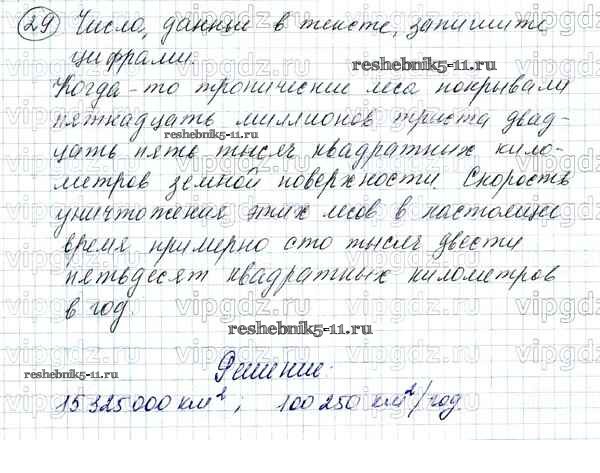 29 Число, данные в тексте, запишите
цифрами.
reshebnik5-11.ru
Когда-то тропические леса покрывали
пятнадцать миллионов триста двад-
reshebnik5-11.ru
цать пять тысяч квадратных кило-
метров земной поверхности. Скорость
уничтожения этих лесов в настоящее
время примерно сто тысяч двести
пятьдесят квадратных километров
в год.
reshebnik5-11.ru
Решение.
reshebnik5-11.ru
15 325 000 км²; 100 250 км²/год.